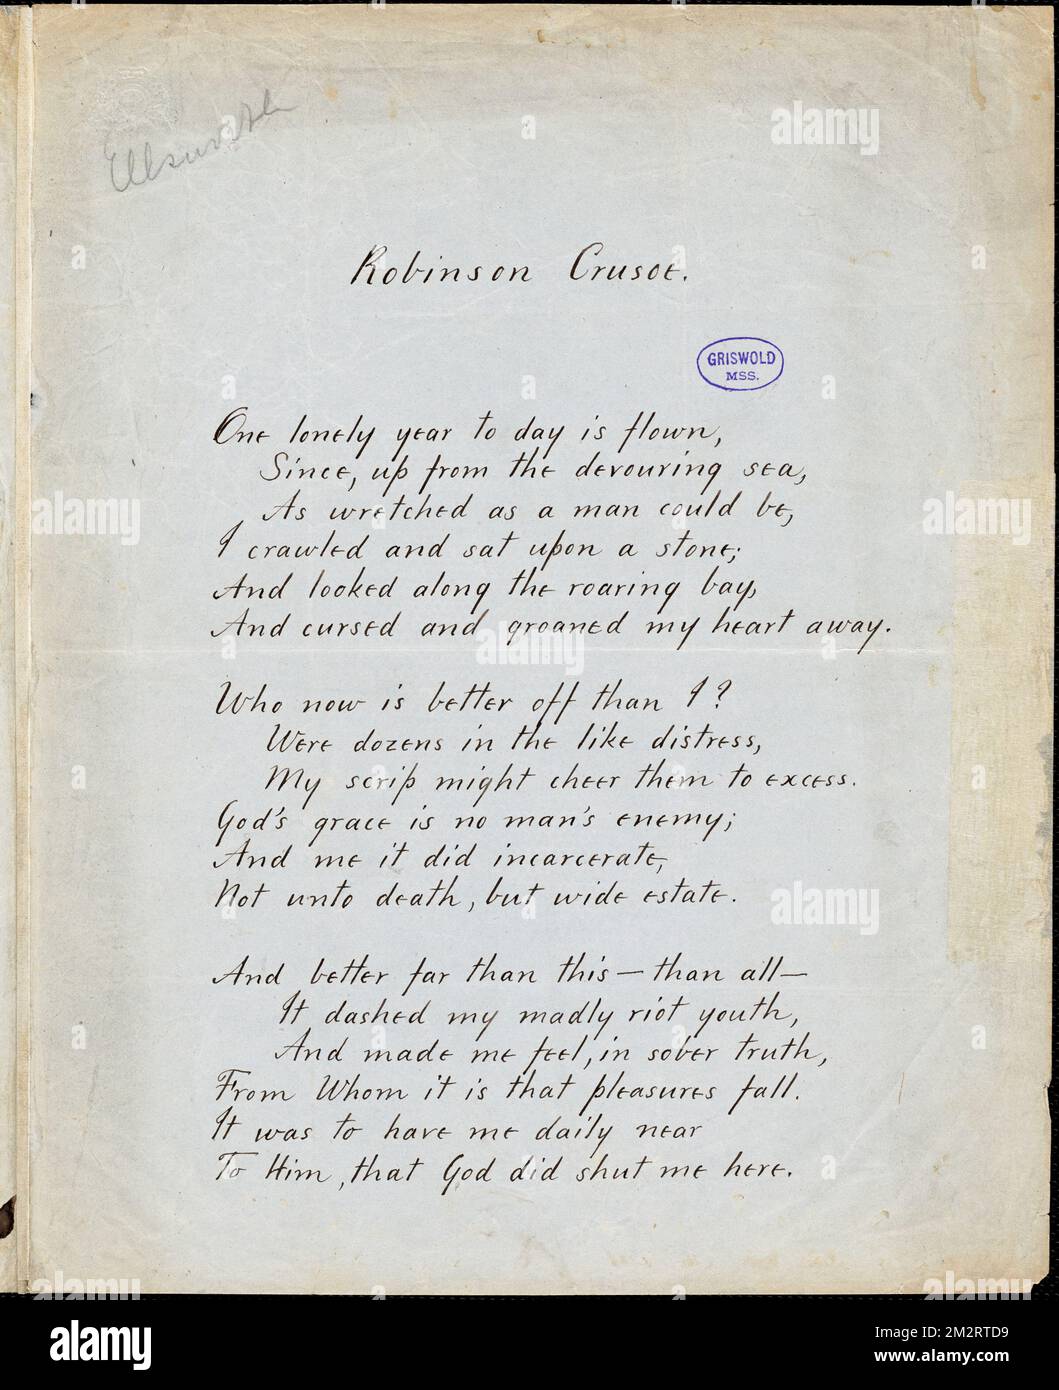 Ellsworth
Robinson Crusoe.
GRISWOLD
MSS.
One lonely year to day is flown,
Since, up from the devouring sea,
As wretched as a man could be,
I crawled and sat upon a stone;
And looked along the roaring bay,
And cursed and groaned my heart away.
Who now is better off than I?
Were dozens in the like distress,
My scrip might cheer them to excess.
God's grace is no man's enemy;
And me it did incarcerate,
Not unto death, but wide estate.
And better far than this — than all —
It dashed my madly riot youth,
And made me feel, in sober truth,
From Whom it is that pleasures fall.
It was to have me daily near
To Him, that God did shut me here.
alamy
Image ID: 2M2RTD9
www.alamy.com